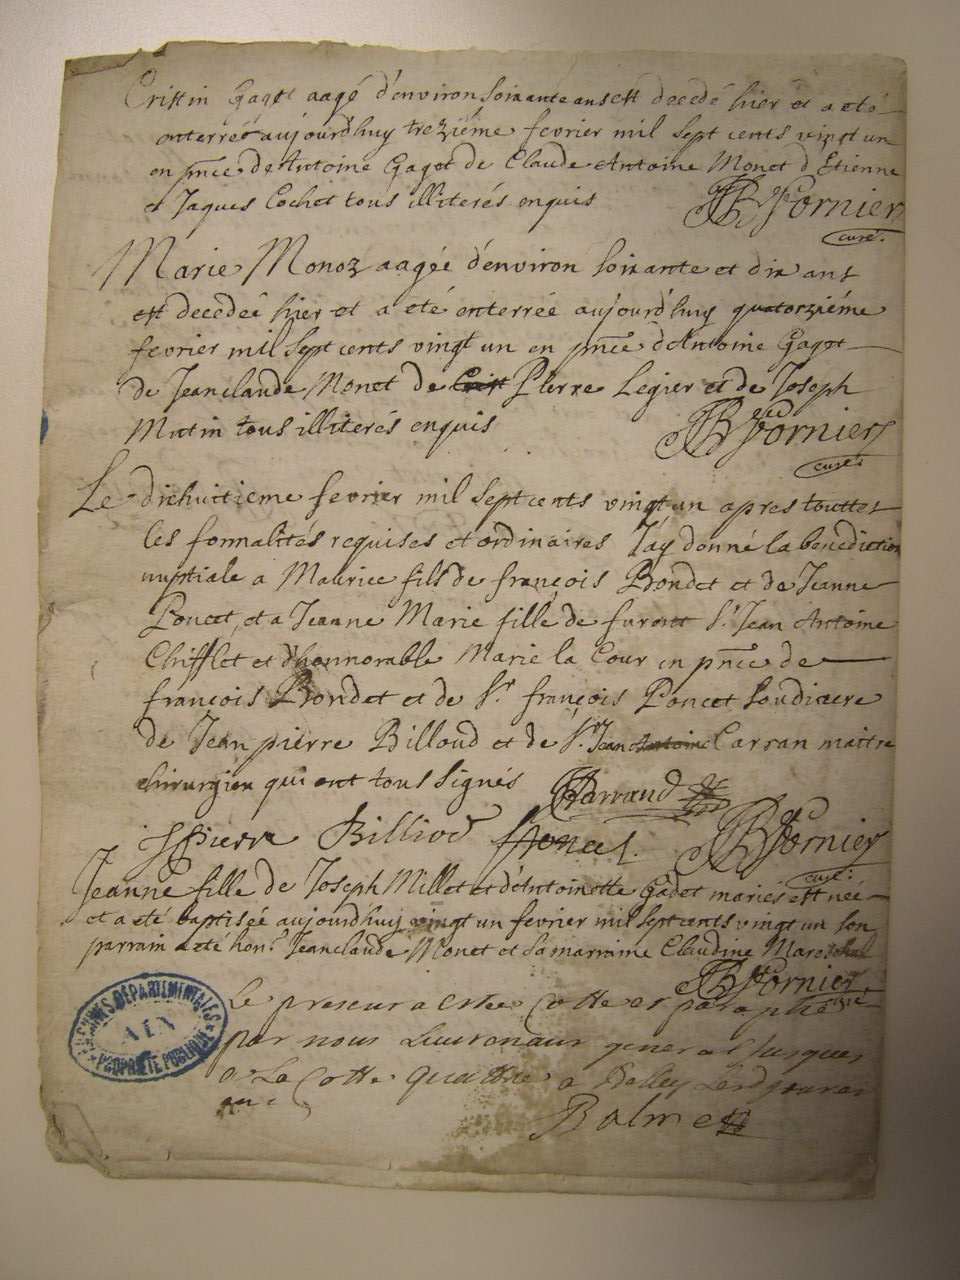 Cristin Gagot aagé d'environ soixante ans est decedé hier et a été
enterré aujourd'huy trezieme fevrier mil sept cents vingt un
en pnce de Antoine Gagot de Claude Antoine Monet d'Etienne
et Jaques Cochet tous illiterés enquis
JB Fornier
curé.
Marie Monoz aagée d'environ soixante et dix ans
est decedée hier et a été enterrée aujourd'huy quatorziéme
fevrier mil sept cents vingt un en pnce d'Antoine Gagot
de Jeanclaude Monet de Pierre Legier et de Joseph
Mutin tous illiterés enquis
JB Fornier
curé.
Le dixhuitieme fevrier mil sept cents vingt un apres touttes
les formalités requises et ordinaires J'ay donné la benediction
nuptiale a Maurice fils de françois Bondet et de Jeanne
Poncet, et a Jeanne Marie fille de furent Sr. Jean Antoine
Chifflet et d'honnorable Marie la Cour en pnce de
françois Bondet et de Sr. françois Poncet soudiacre
de Jean pierre Billoud et de Sr. Jean Antoine Carran maitre
chirurgien qui ont tous signés
Carrand
JPierre Billiod
fPoncet.
JB Fornier
curé:
Jeanne fille de Joseph Millet et d'Antoinette Gadet mariés est née
et a été baptisée aujourd'huy vingt un fevrier mil sept cents vingt un son
parrain a été hon. Jeanclaude Monet et sa marraine Claudine Mareschal
JB Fornier
curé
Le present a esté Cotté et paraphé
par nous Lieutenant general jusques
a La Cotte quattre a Belley Led jour et
an
Balme
ARCHIVES DÉPARTEMENTALES
AIN
PROPRIÉTÉ PUBLIQUE